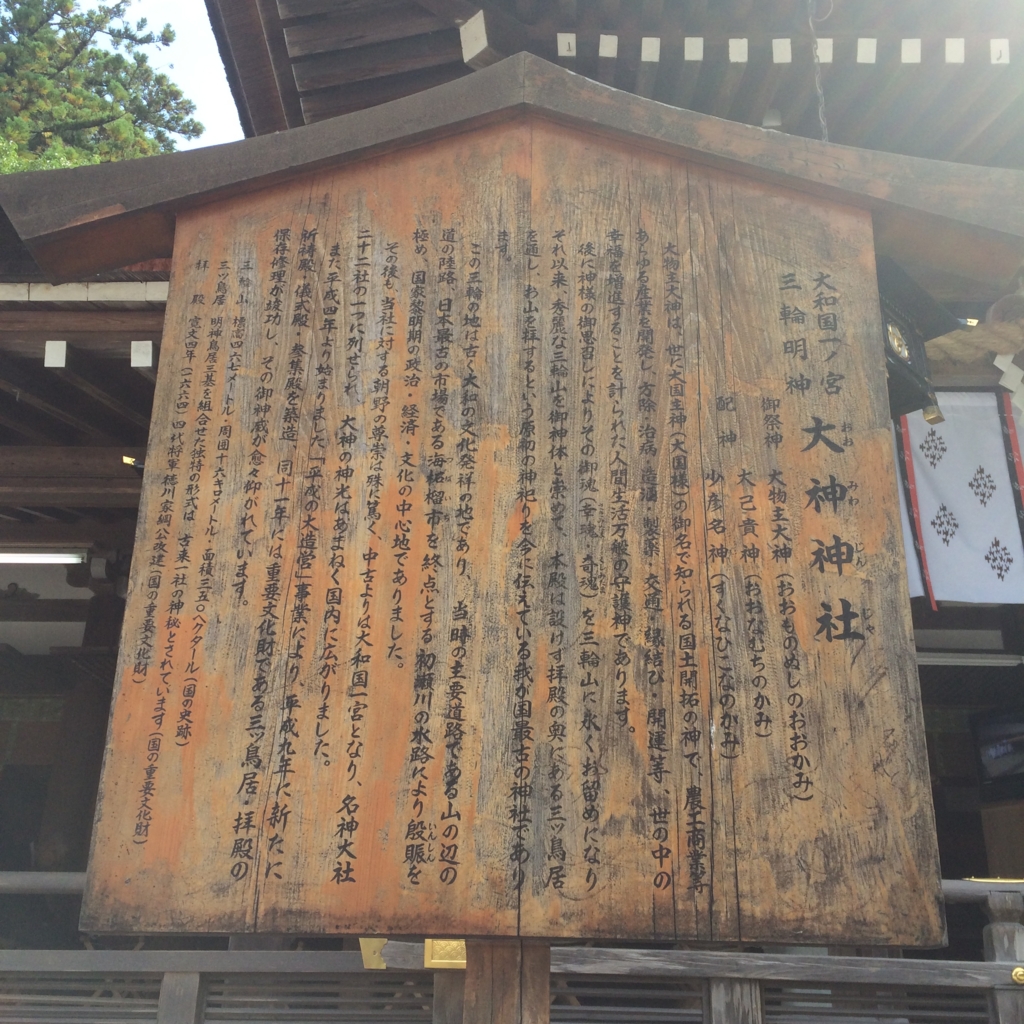 大和国一ノ宮
三輪明神
大神神社
おお みわ じん じゃ
御祭神 大物主大神(おおものぬしのおおかみ)
大己貴神(おおなむちのかみ)
配神 少彦名神(すくなひこなのかみ)
大物主大神は、世に大国主神(大国様)の御名で知られる国土開拓の神で、農工商業等
あらゆる産業を開発し、方除・治病・造酒・製薬・交通・縁結び・開運等、世の中の
幸福を増進することを計られた人間生活万般の守護神であります。
後に神様の御思召しによりその御魂(幸魂、奇魂)を三輪山に永くお留めになり
それ以来、秀麗な三輪山を御神体と崇めて、本殿は設けず拝殿の奥にある三ッ鳥居
を通し、お山を拝するという原初の神祀りを今に伝えている我が国最古の神社であり
ます。
この三輪の地は古く大和の文化発祥の地であり、当時の主要道路である山の辺の
道の陸路、日本最古の市場である海柘榴市を終点とする初瀬川の水路により殷賑を
いんしん
極め、国家黎明期の政治・経済・文化の中心地でありました。
その後も、当社に対する朝野の尊崇は殊に篤く、中古よりは大和国一宮となり、名神大社
二十二社の一つに列せられ、大神の神光はあまねく国内に広がりました。
また平成四年より始まりました「平成の大造営」事業により、平成九年に新たに
祈祷殿、儀式殿、参集殿を築造、同十一年には重要文化財である三ッ鳥居・拝殿の
保存修理が竣功し、その御神威が愈々仰がれています。
三輪山 標高四六七メートル・周囲十六キロメートル・面積三五〇ヘクタール(国の史跡)
三ッ鳥居 明神鳥居三基を組合せた独特の形式は、古来一社の神秘とされています(国の重要文化財)
拝殿 寛文四年(一六六四)四代将軍徳川家綱公改建(国の重要文化財)